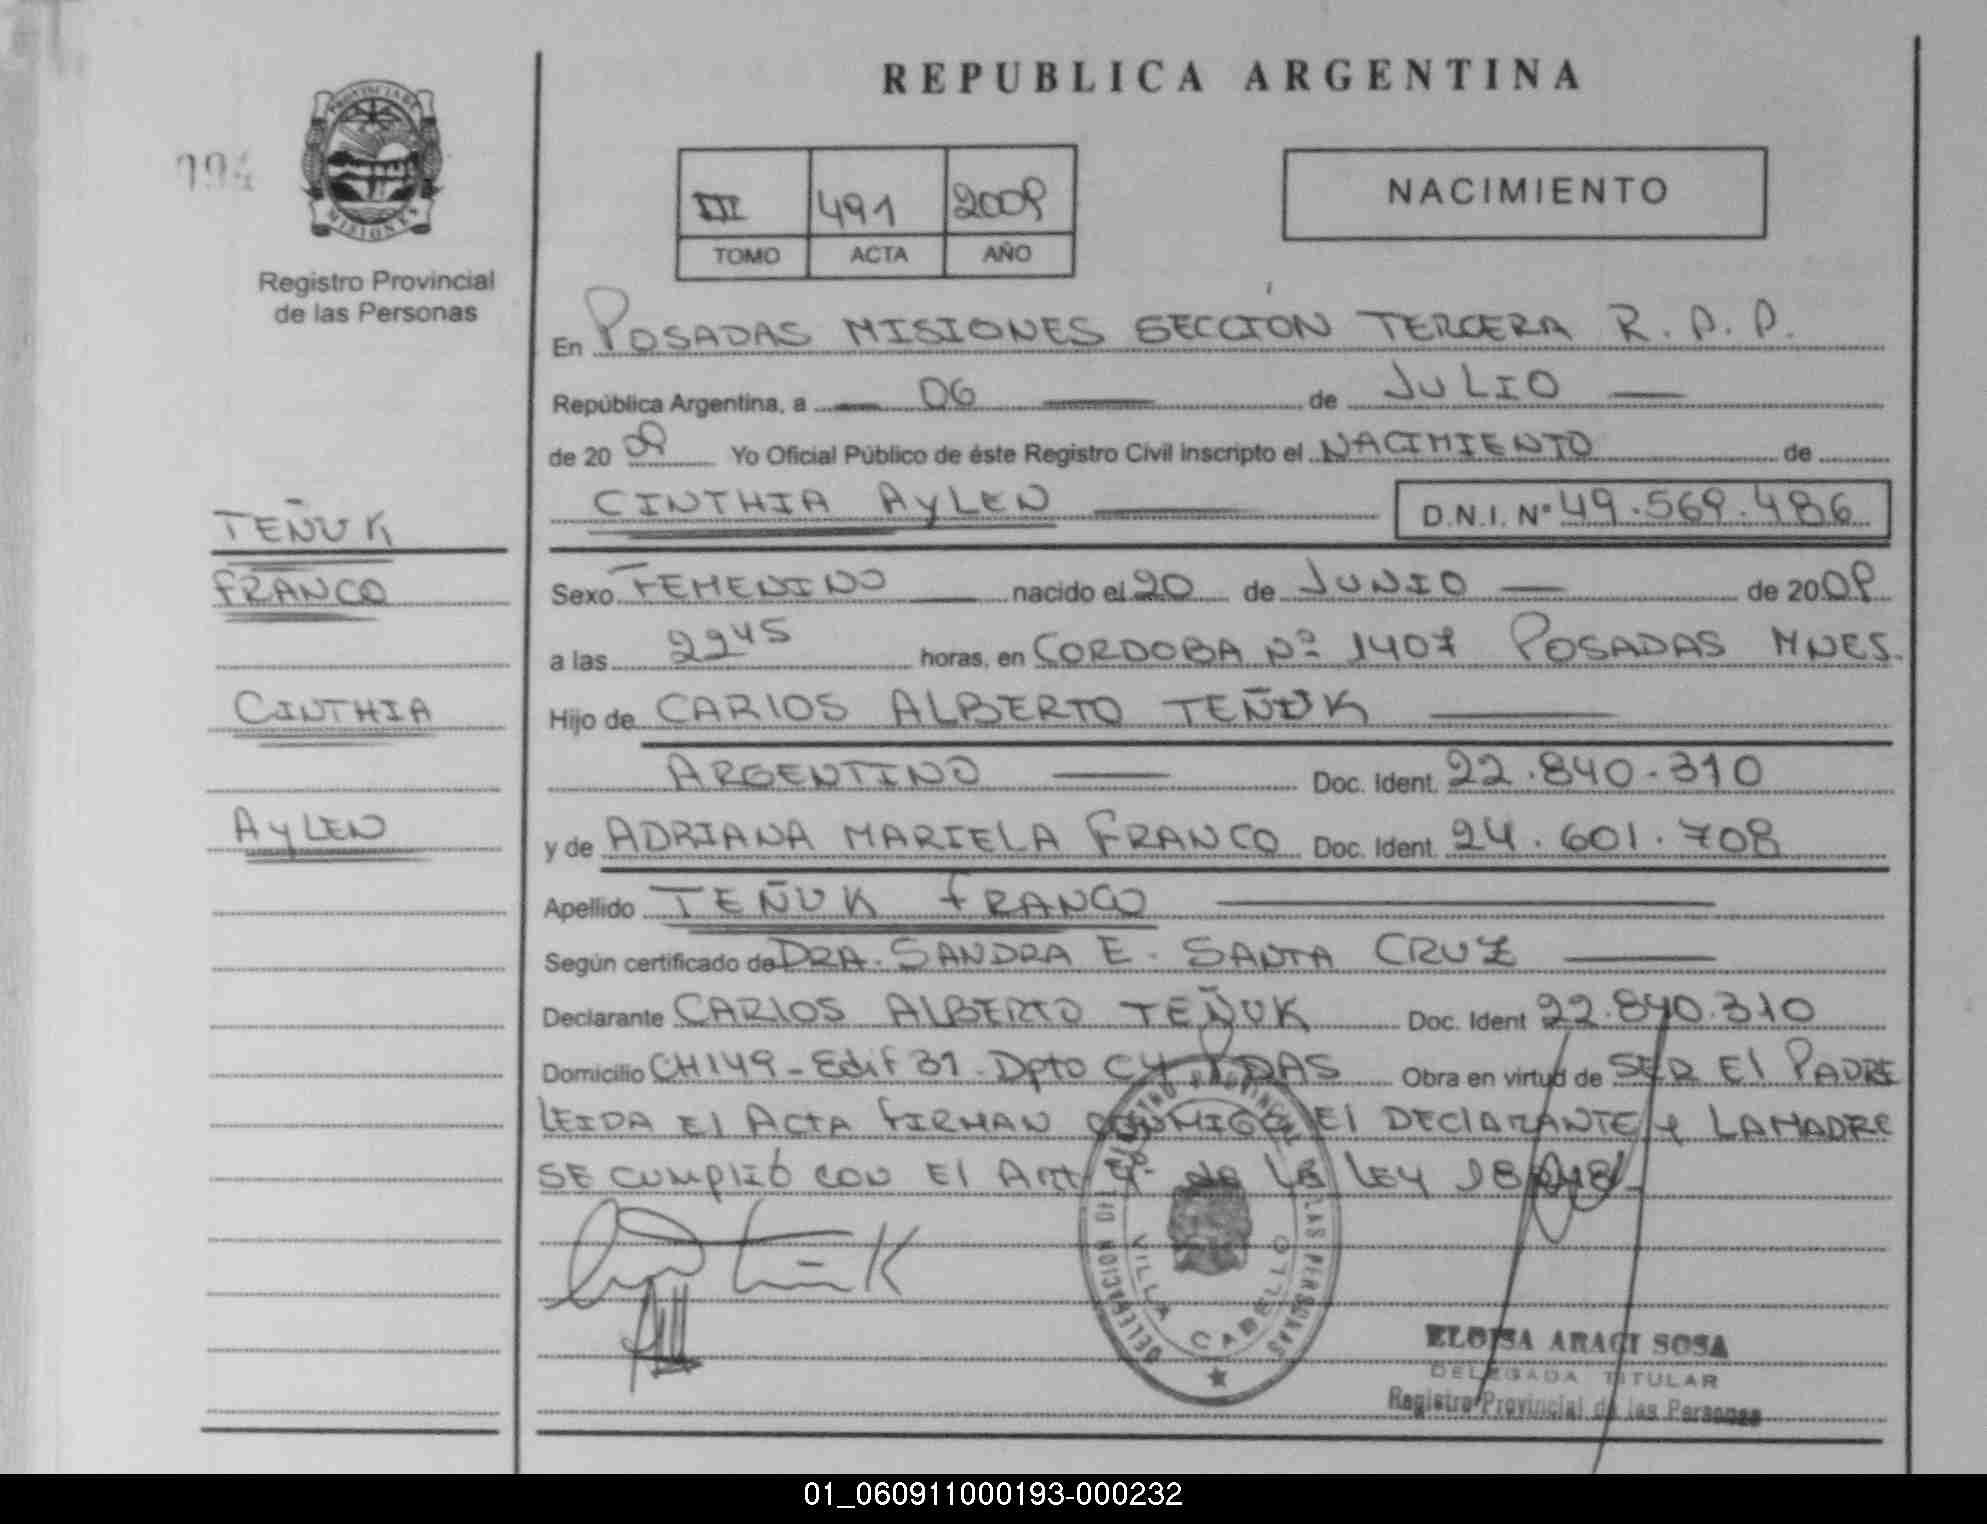 REPUBLICA ARGENTINA
PROVINCIA DE
MISIONES
Registro Provincial
de las Personas
III 491 2009
TOMO ACTA AÑO
NACIMIENTO
En POSADAS MISIONES SECCION TERCERA R.P.P.
República Argentina, a 06 de JULIO
de 20 09 Yo Oficial Público de éste Registro Civil inscripto el NACIMIENTO de
CINTHIA AYLEN D.N.I. Nº 49.569.486
TEÑUK
FRANCO
CINTHIA
AYLEN
Sexo FEMENINO nacido el 20 de JUNIO de 2009
a las 22 45 horas, en CORDOBA Nº 1407 POSADAS MNES.
Hijo de CARLOS ALBERTO TEÑUK
ARGENTINO Doc. Ident. 22.840.310
y de ADRIANA MARIELA FRANCO Doc. Ident. 24.601.708
Apellido TEÑUK FRANCO
Según certificado de DRA. SANDRA E. SANTA CRUZ
Declarante CARLOS ALBERTO TEÑUK Doc. Ident 22.840.310
Domicilio CH149 - Edif 31 - Dpto C4 PDAS Obra en virtud de SER El PADRE
LEIDA El ACTA FIRMAN CONMIGO El DECLARANTE y LA MADRE
SE CUMPLIÓ CON El Art 9º de LA LEY
DELEGACION REGISTRO PROVINCIAL DE LAS PERSONAS
VILLA CABELLO
ELOISA ARACI SOSA
DELEGADA TITULAR
Registro Provincial de las Personas
01_060911000193-000232